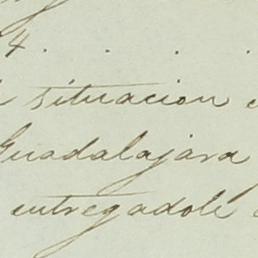 4 . . . .
situacion
Guadalajara
entregadole